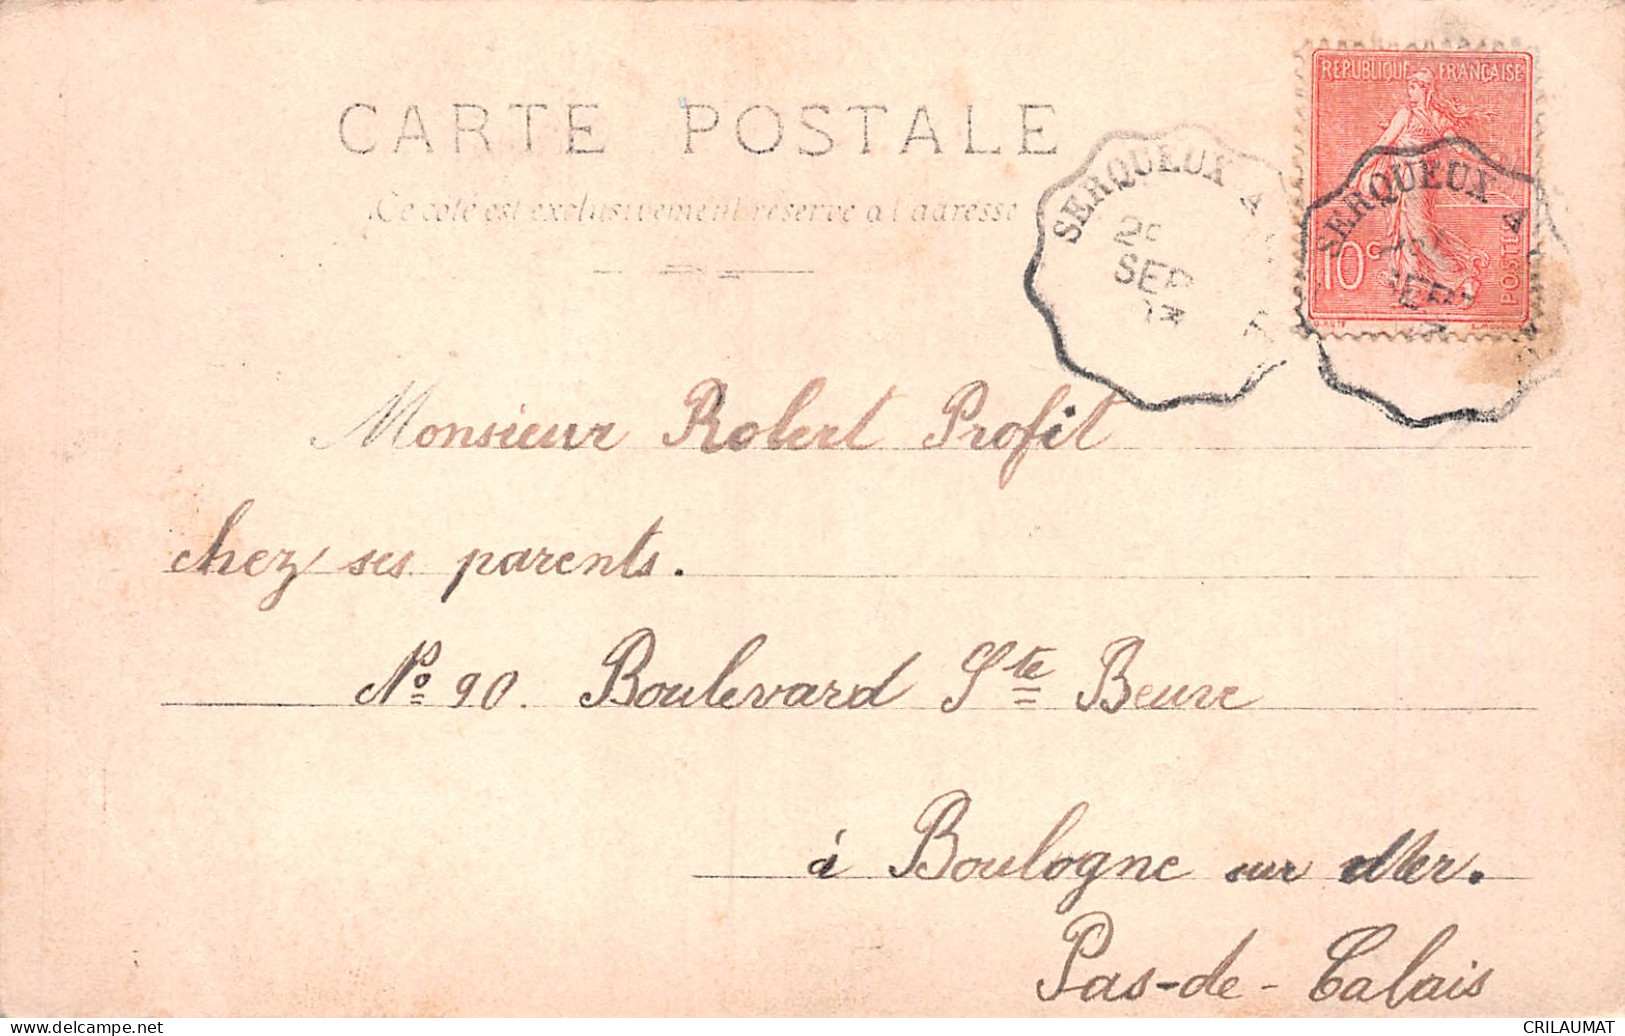 CARTE POSTALE
Ce côté est exclusivement réservé à l'adresse
REPUBLIQUE FRANÇAISE
10c
POSTES
SERQUEUX A
SEP
SERQUEUX A
SEP
Monsieur Robert Profit
chez ses parents.
No 90. Boulevard Ste Beuve
à Boulogne sur Mer.
Pas-de-Calais
CRILAUMAT